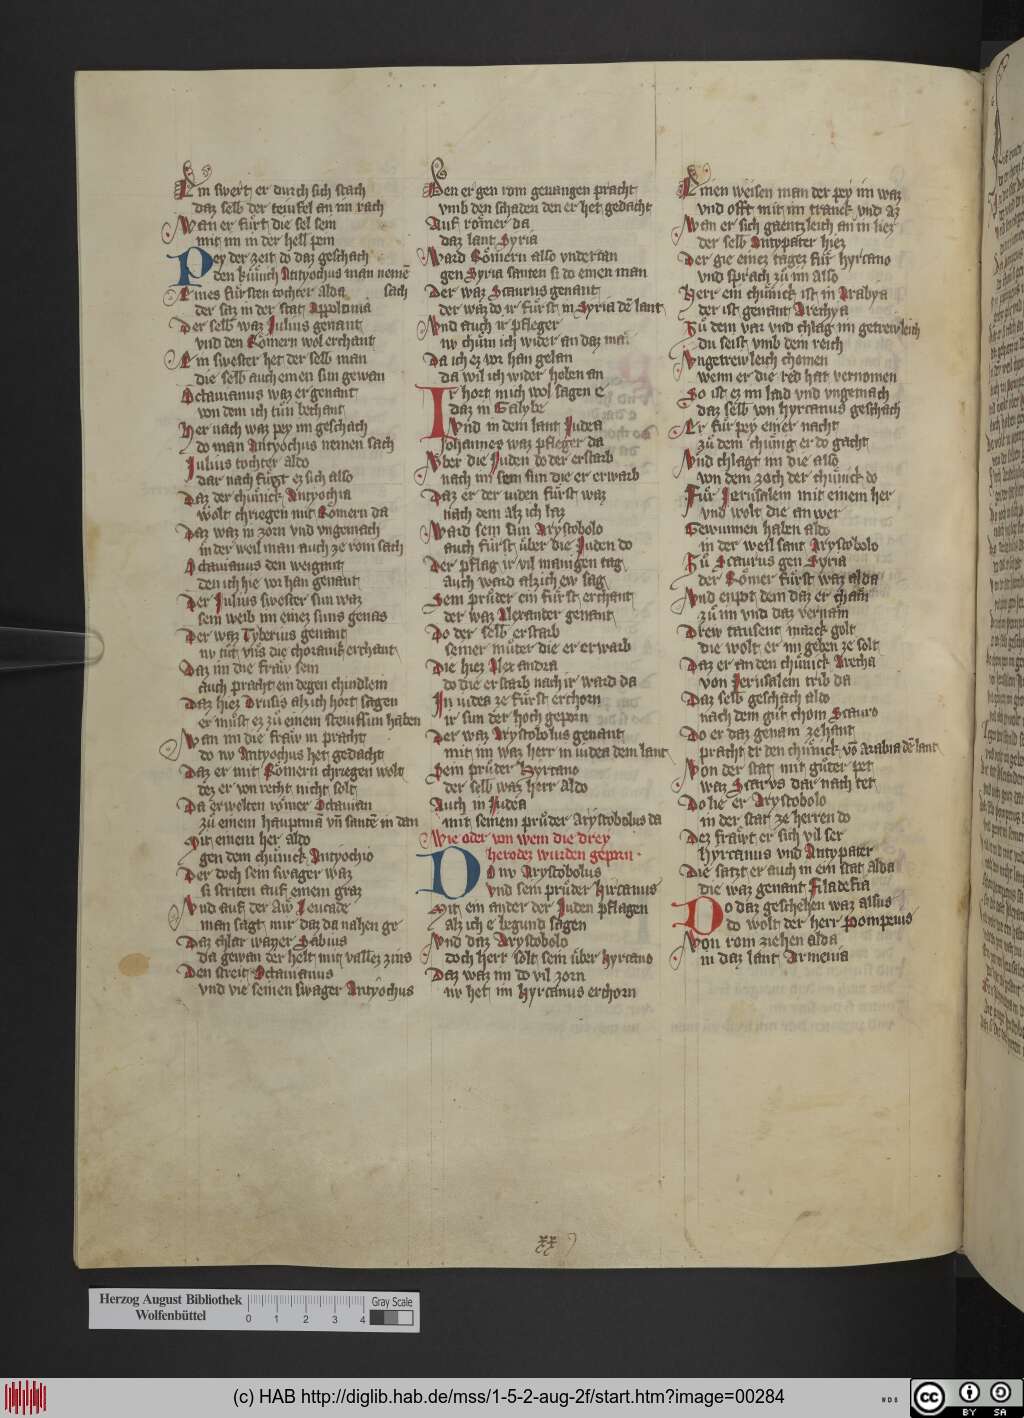 Ein swert er durch sich stach
daz selb der teufel an im rach
Wan er fürt die sel sein
mit im in der hell pein
Pey der zeit do daz geschach
den künich Antyochus man nemē
Eines fürsten tochter alda sach
der saz in der stat Appolonia
Der selb waz Julius genant
vnd den Römern wol erchant
Ein swester het der selb man
die selb auch einen sun gewan
Octauianus waz er genant
von dem ich tün bechant
Her nach waz pey im geschach
do man Antyochus nemen sach
Julius tochter aldo
dar nach fügt ez sich also
Daz der chünick Antyochia
wolt chriegen mit Römern da
Daz waz in zorn vnd vngemach
in der weil man auch ze rom sach
Octauianus den weigant
den ich hie vor han genant
Der Julius swester sun waz
sein weib im einez suns genas
Der waz Tyberius genant
nv tüt vns die choranik erchant
Daz im die fraw sein
auch pracht ein degen chindlein
Daz hiez Drusis alz ich hort sagen
er must ez zü einem steuffun haben
Wan im die fraw in pracht
do nv Antyochus het gedacht
Daz er mit Römern chriegen wolt
dez er von recht nicht solt
Da erwelten römer Octauian
zü einem hauptmā vn santē in dan
Mit einem her aldo
gen dem chünick Antyochio
Der doch sein swager waz
si striten auf einem graz
Vnd auf der Aw Leucade
man sagt mir daz da nahen ge
Daz chlar wazer Sabius
da gewan der helt mit vallez zins
Den streit Octauianus
vnd vie seinen swager Antyochus
Den er gen rom geuangen pracht
vmb den schaden den er het gedacht
Auf römer da
daz lant Syria
Ward Römern also vndertan
gen Syria santen si do einen man
Der waz Scaurus genant
der waz do ir fürst in Syria dē lant
Vnd auch ir pfleger
nv chum ich wider an daz mär
Da ich ez vor han gelan
da wil ich wider heben an
Ir hort mich wol sagen e
daz in Galybe
Vnd in dem lant Judea
Johannes waz pfleger da
Vber die Juden do der erstarb
nach im sein sun die er erwarb
Daz er der iuden fürst waz
nach dem alz ich laz
Ward sein sun Arystobolo
auch fürst über die Juden do
Der pflag ir vil manigen tag
auch ward alz ich ew sag
Sein prüder ein fürst erchant
der waz Alexander genant
Do der selb erstarb
seiner müter die er erwarb
Die hiez Alexandra
do die erstarb nach ir ward da
In iudea ze fürst erchorn
ir sun der hoch geporn
Der waz Arystobolus genant
mit im waz herr in iudea dem lant
Sein prüder Hyrcano
der selb waz herr aldo
Auch in Judea
mit seinem prüder Arystobolus da
Wie oder von wem die drey
herodez wurden geporn
Do nv Arystobolus
vnd sein prüder hircanus
Mit ein ander der Juden pflagen
alz ich e begund sagen
Vnd daz Arystobolo
doch herr solt sein über hyrcano
Daz waz im do vil zorn
nv het im hyrcanus erchorn
Einen weisen man der pey im waz
vnd offt mit im tranck vnd az
Wan er sich gaentzleich an in liez
der selb Antypater hiez
Der gie einez tagez für hyrcano
vnd sprach zü im also
Herr ein chünick ist in Arabya
der ist genant Arechya
Zü dem var vnd chlag im getrewleich
du seist vmb dem reich
Vngetrewleich chomen
wenn er die red hat vernomen
So ist ez im laid vnd vngemach
daz selb von hyrcanus geschach
Er für pey einer nacht
zü dem chünig er do gacht
Vnd chlagt im die also
von dem zoch der chünick do
Für Jerusalem mit einem her
vnd wolt die an wer
Gewunnen haben aldo
in der weil sant Arystobolo
Zü Scaurus gen Syria
der Römer fürst waz alda
Vnd enpot dem daz er chäm
zü im vnd daz vernäm
Drew tausent marck golt
die wolt er im geben ze solt
Daz er an den chünick Arecha
von Jerusalem trib da
Daz selb geschach aldo
nach dem güt chom Scauro
Do er daz genam zehant
pracht er den chünick vō Arabia dē lant
Von der stat mit güter pet
waz Scarvs dar nach tet
Do lie er Arystobolo
in der stat ze herren do
Dez fräwt er sich vil ser
hyrcanus vnd Antypater
Die satzt er auch in ein stat alda
die waz genant filadefia
Do daz geschehen waz alsus
do wolt der herr pompeius
Von rom ziehen alda
in daz lant Armenia
xx
Herzog August Bibliothek
Wolfenbüttel
0 1 2 3 4
Gray Scale
(c) HAB http://diglib.hab.de/mss/1-5-2-aug-2f/start.htm?image=00284
WDB
cc BY SA